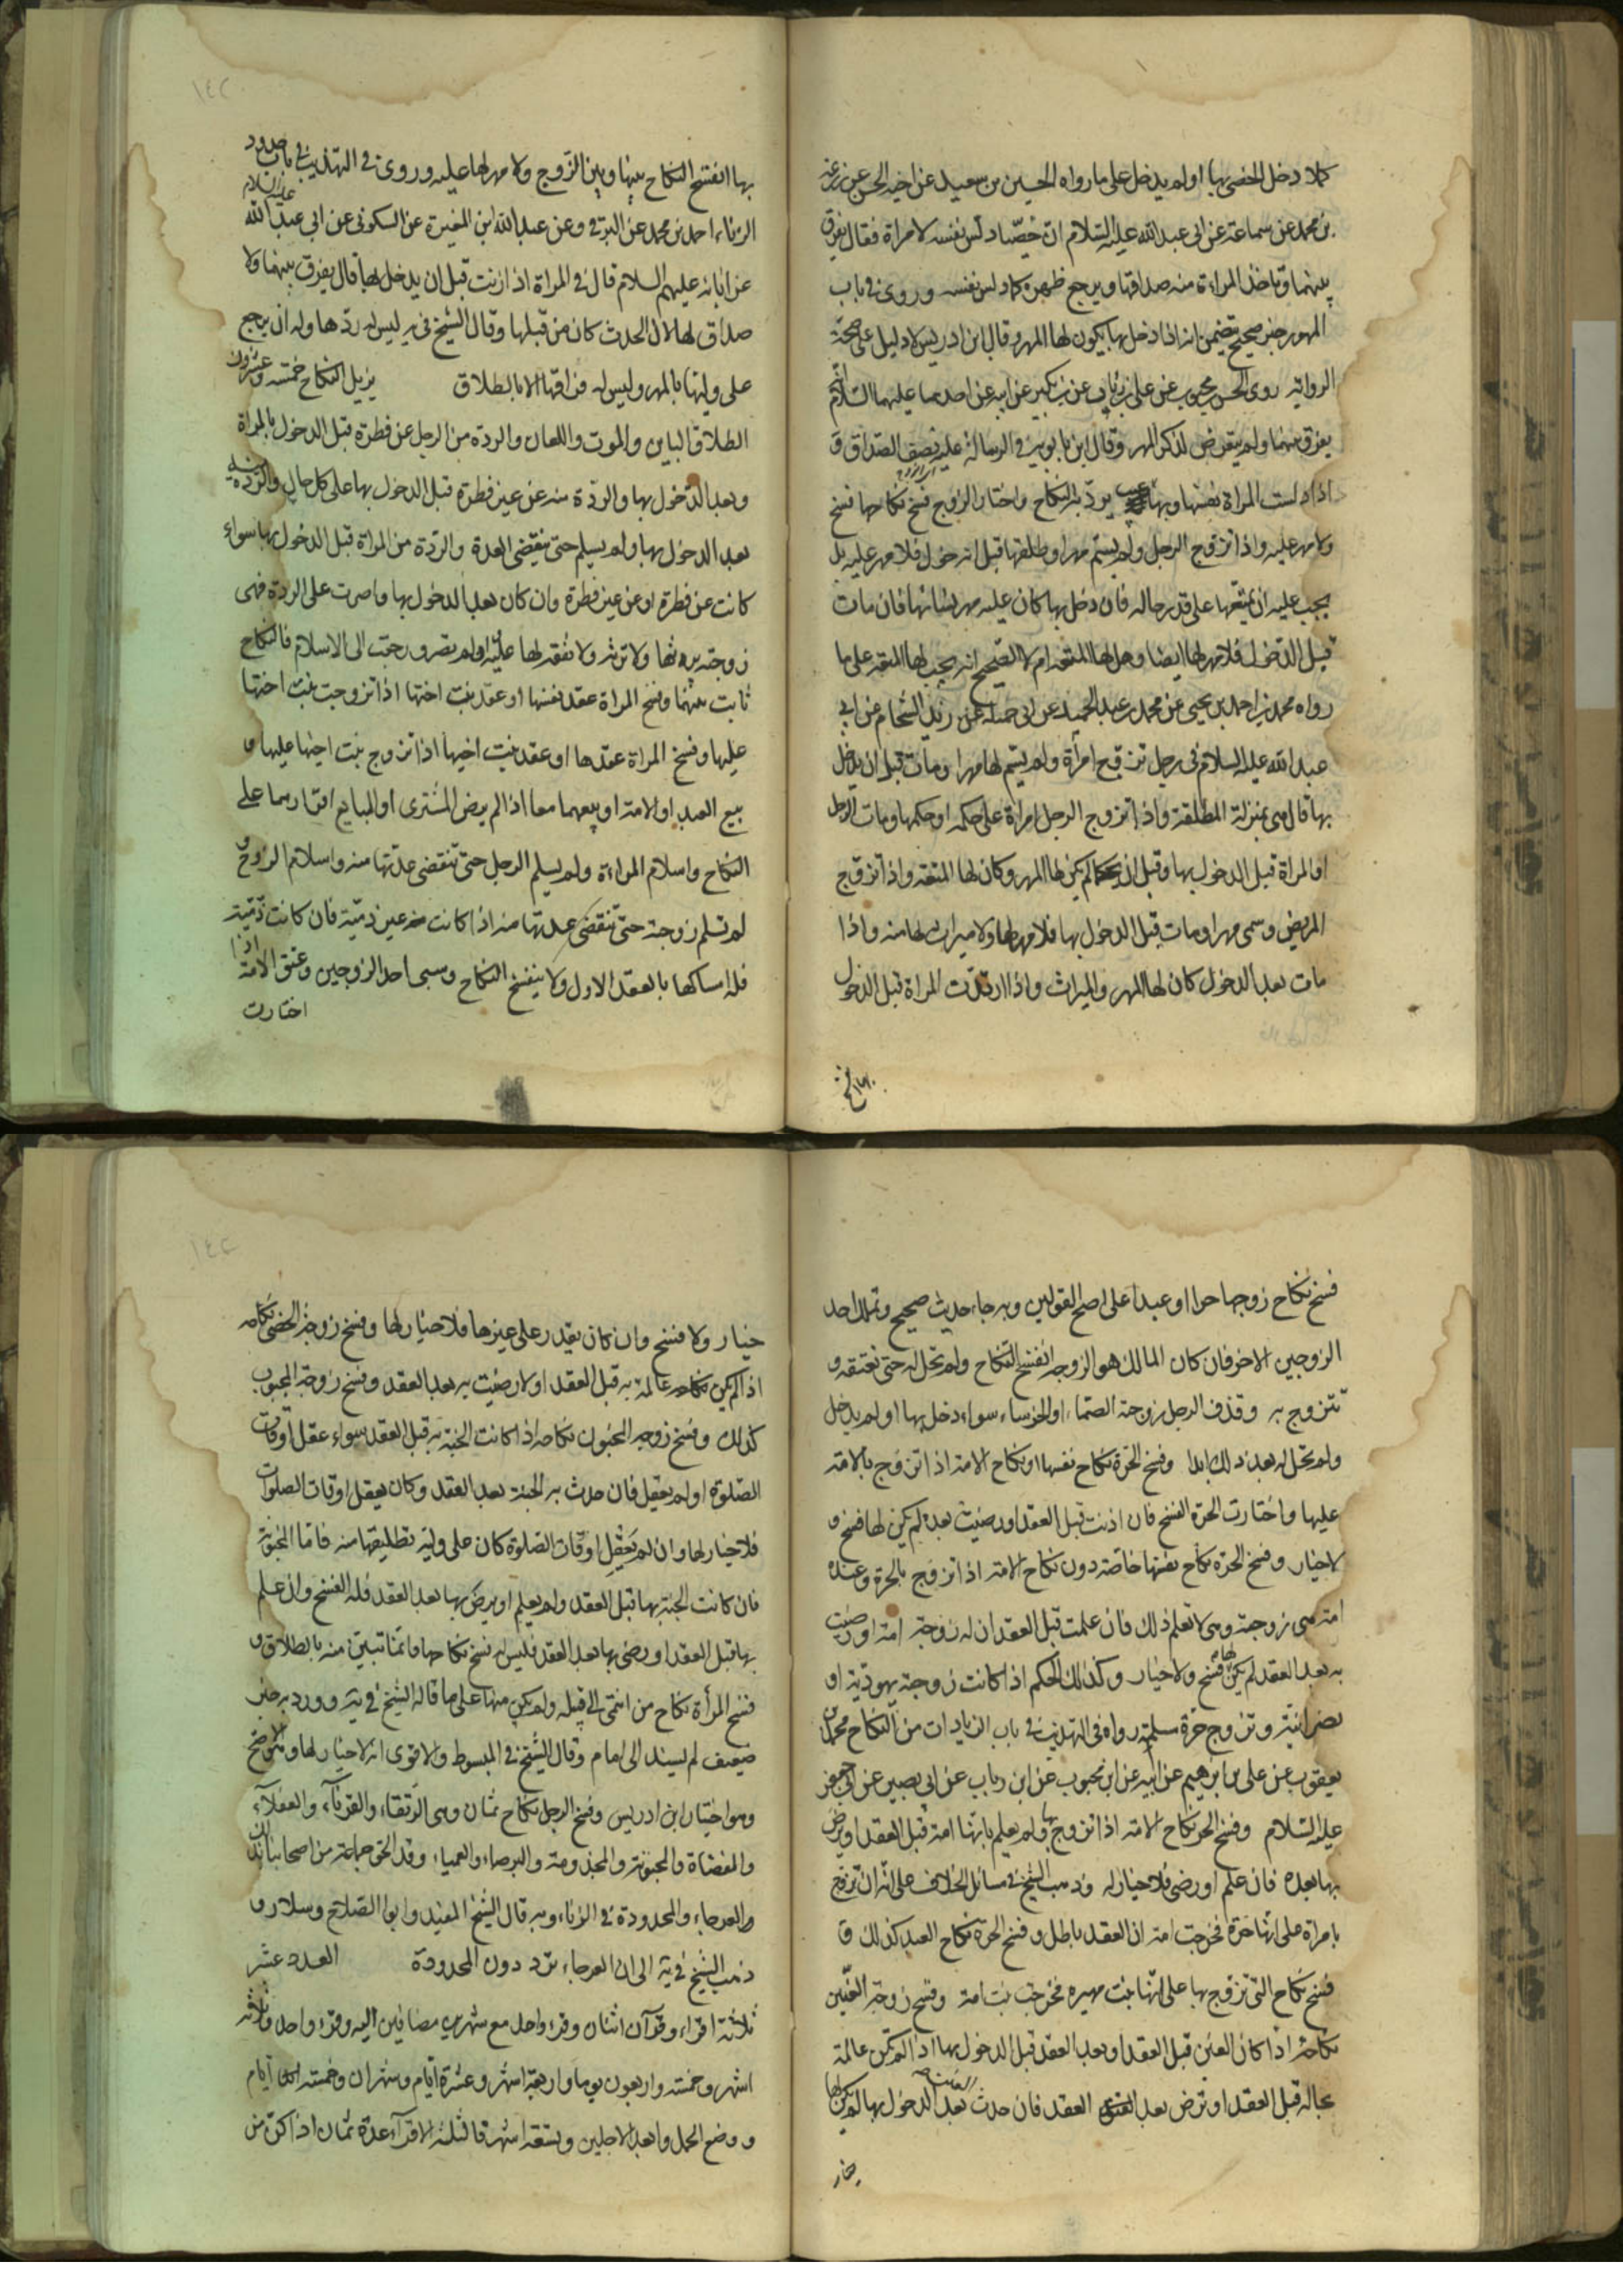 كلا دخل الخصي بها اولم يدخل على ما رواه الحسين بن سعيد عن اخيه الحسن عن زرعة
بن محمد عن سماعة عن ابي عبد الله عليه السلام ان خصيا دلس نفسه لامراة فقال يفرق
بينهما وتاخذ المراءة منه صداقها ويرجع ظهره كما دلس نفسه وروى في باب
المهور خبر صحيح يتضمن انه اذا دخل بها يكون لها المهر وقال ابن ادريس لا دليل على صحة
الرواية روى الحسن محبوب عن علي بن رئاب عن بن بكير عن ابيه عن احدهما عليهما السلام انه
يفرق بينهما ولم يتعرض لذكر المهر وقال ابن بابويه في الرسالة عليه نصف الصداق و
اذا دلست المراة نفسها وبها عيب يرد به النكاح واختار الزوج فسخ نكاحها فسخ
ولا مهر عليه واذا تزوج الرجل ولم يسم مهرا وطلقها قبل الدخول فلا مهر عليه بل
يجب عليه ان يمتعها على قدر حاله فان دخل بها كان عليه مهر نسائها فان مات
قبل الدخول فلا مهر لها ايضا وهل لها المتعة ام لا الصحيح انه يجب لها المتعة على ما
رواه محمد بن احمد بن يحيى عن محمد بن عبد الحميد عن ابي جميلة عن زيد الشحام عن ابي
عبد الله عليه السلام في رجل تزوج امرأة ولم يسم لها مهرا ومات قبل ان يدخل
بها قال هي بمنزلة المطلقة واذا تزوج الرجل امراة على حكمه او حكمها ومات الرجل
او المراة قبل الدخول بها وقبل ان يحكما لم يكن لها المهر وكان لها المتعة واذا تزوج
المريض وسمى مهرا ومات قبل الدخول بها فلا مهر لها ولا ميراث لها منه واذا
مات بعد الدخول كان لها المهر والميراث واذا ارتدت المراة قبل الدخول
بها انفسخ النكاح بينها وبين الزوج ولا مهر لها عليه وروى في التهذيب في باب حدود
الزناء احمد بن محمد عن البرقي وعن عبد الله ابن المغيرة عن السكوني عن ابي عبد الله عليه السلام
عن ابائه عليهم السلام قال في المراة اذا زنت قبل ان يدخل بها قال يفرق بينهما ولا
صداق لها لان الحدث كان من قبلها وقال الشيخ في يه ليس له ردها وله ان يرجع
على وليها بالمهر وليس له فراقها الا بالطلاق يزيل النكاح خمسة وعشرون
الطلاق البائن والموت واللعان والردة من الرجل عن فطرة قبل الدخول بالمراة
وبعد الدخول بها والردة منه عن غير فطرة قبل الدخول بها على كل حال والردة منه
بعد الدخول بها ولم يسلم حتى تنقضي العدة والردة من المراة قبل الدخول بها سواء
كانت عن فطرة او عن غير فطرة وان كان بعد الدخول بها واصرت على الردة فهى
زوجته يرثها ولا ترثه ولا نفقة لها عليه ولم تصر ورجعت الى الاسلام فالنكاح
ثابت بينهما وفسخ المراة عقد نفسها او عقد بنت اختها اذا تزوجت بنت اختها
عليها وفسخ المراة عقدها او عقد بنت اخيها اذا تزوج بنت اخيها عليها و
بيع العبد او الامة او بيعهما معا اذا لم يرض المشترى او البايع اقرارهما على
النكاح واسلام المراءة ولم يسلم الرجل حتى تنقضي عدتها منه واسلام الزوج و
لم تسلم زوجته حتى تنقضي عدتها منه اذا كانت غير ذمية فان كانت ذمية
فله امساكها بالعقد الاول ولا ينفسخ النكاح وسبى احد الزوجين وعتق الامة اذا
اختارت
فسخ نكاح زوجها حرا او عبدا على اصح القولين وبه جاء حديث صحيح وتملك احد
الزوجين الاخر فان كان المالك هو الزوجه انفسخ النكاح ولم تحل له حتى تعتقه و
تتزوج به وقذف الرجل زوجته الصماء او الخرساء سواء دخل بها او لم يدخل
ولم تحل له بعد ذلك ابدا وفسخ الحرة نكاح نفسها او نكاح الامة اذا تزوج بالامة
عليها واختارت الحرة الفسخ فان اذنت قبل العقد او رضيت بعده لم يكن لها فسخ و
لا خيار وفسخ الحرة نكاح نفسها خاصة دون نكاح الامة اذا تزوج بالحرة وعنده
امة هى زوجته وهى لا تعلم ذلك فان علمت قبل العقد ان له زوجة امة او رضيت
به بعد العقد لم يكن لها فسخ ولا خيار وكذلك الحكم اذا كانت زوجته يهودية او
نصرانية وتزوج حرة مسلمة رواه في التهذيب في باب الزيادات من النكاح محمد بن
يعقوب عن علي بن ابرهيم عن ابيه عن ابن محبوب عن ابن رباب عن ابي بصير عن ابي جعفر
عليه السلام وفسخ الحر نكاح الامة اذا تزوج بها ولم يعلم بانها امة قبل العقد او يرض
بها بعده فان علم او رضى فلا خيار له وذهب الشيخ في مسائل الخلاف على انه ان تزوج
بامراة على انها حرة فخرجت امة ان العقد باطل وفسخ الحرة نكاح العبد كذلك و
فسخ نكاح التى تزوج بها على انها بنت مهيرة فخرجت بنت امة وفسخ زوجة العنين
نكاحه اذا كان العنن قبل العقد او بعد العقد قبل الدخول بها اذا لم تكن عالمة
بحاله قبل العقد او ترض بعد العقد فان حدث العنت بعد الدخول بها لم يكن لها
خيار
خيار ولا فسخ وان كان يقدر على غيرها فلا خيار لها وفسخ زوجة الخصي نكاحه
اذا لم يكن عالمة به قبل العقد او لا رضيت به بعد العقد وفسخ زوجة المجبوب
كذلك وفسخ زوجه المجنون نكاحه اذا كانت الجنة به قبل العقد سواء عقل اوقات
الصلوة او لم يعقل فان حدث به الجنة بعد العقد وكان يعقل اوقات الصلوات
فلا خيار لها وان لم يعقل اوقات الصلوة كان على وليه تطليقها منه فاما المجنونة
فان كانت الجنة بها قبل العقد ولم يعلم او يرض بها بعد العقد فله الفسخ وان علم
بها قبل العقد او رضى بها بعد العقد فليس له فسخ نكاحها وانما تبين منه بالطلاق و
فسخ المرأة نكاح من انتمى الى قبيلة ولم يكن منها على ما قاله الشيخ في يه وورد به خبر
ضعيف لم يسند الى امام وقال الشيخ في المبسوط والاقوى انه لا خيار لها
وهو اختيار ابن ادريس وفسخ الرجل نكاح ثمان وهى الرتقاء والقرناء والعفلاء
والمفضاة والمجنونة والمجذومة والبرصاء والعمياء وقد الحق جماعة من اصحابنا بذلك
والعرجاء والمحدودة في الزناء وبه قال الشيخ المفيد وابو الصلاح وسلار و
ذهب الشيخ في يه الى ان العرجاء ترد دون المحدودة العدد عشر
ثلاثة اقراء وقرآن اثنان وقرء واحد مع شهرين مضافين اليه وقرء واحد وثلاثة
اشهر وخمسة واربعون يوما واربعة اشهر وعشرة ايام وشهران وخمسة ايام
ووضع الحمل وابعد الاجلين وتسعة اشهر فالثلثة الاقرآء عدة ثمان اذا كن من